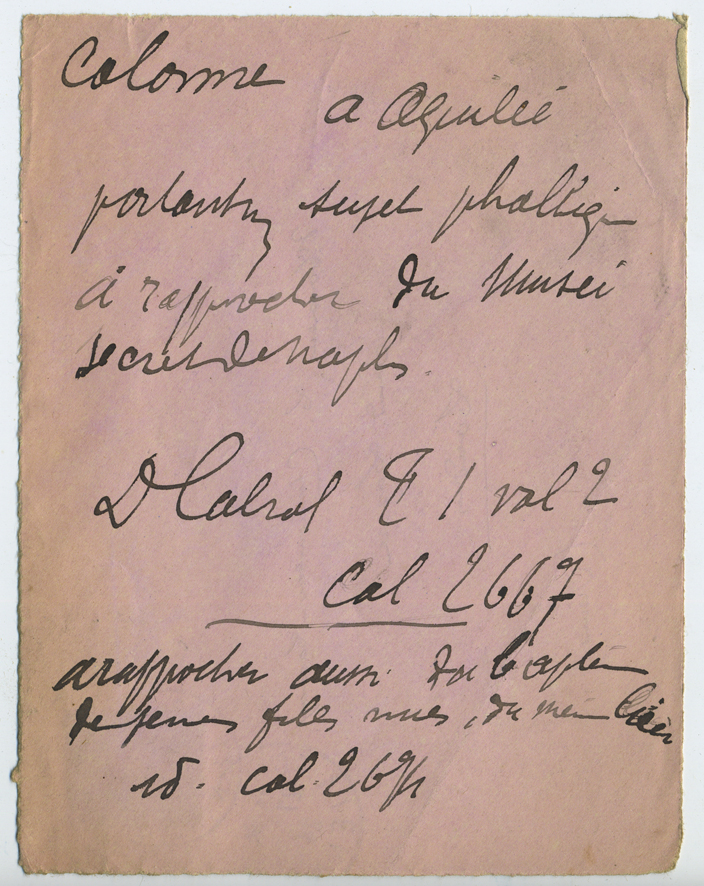 Colonne
a Aquilée
portant sujet phalliq
à rapprocher du Musée
secret de Naples.
D Cabrol T 1 vol 2
Col 2667
a rapprocher aussi du
de jeunes filles nues, du mem
id. col. 267